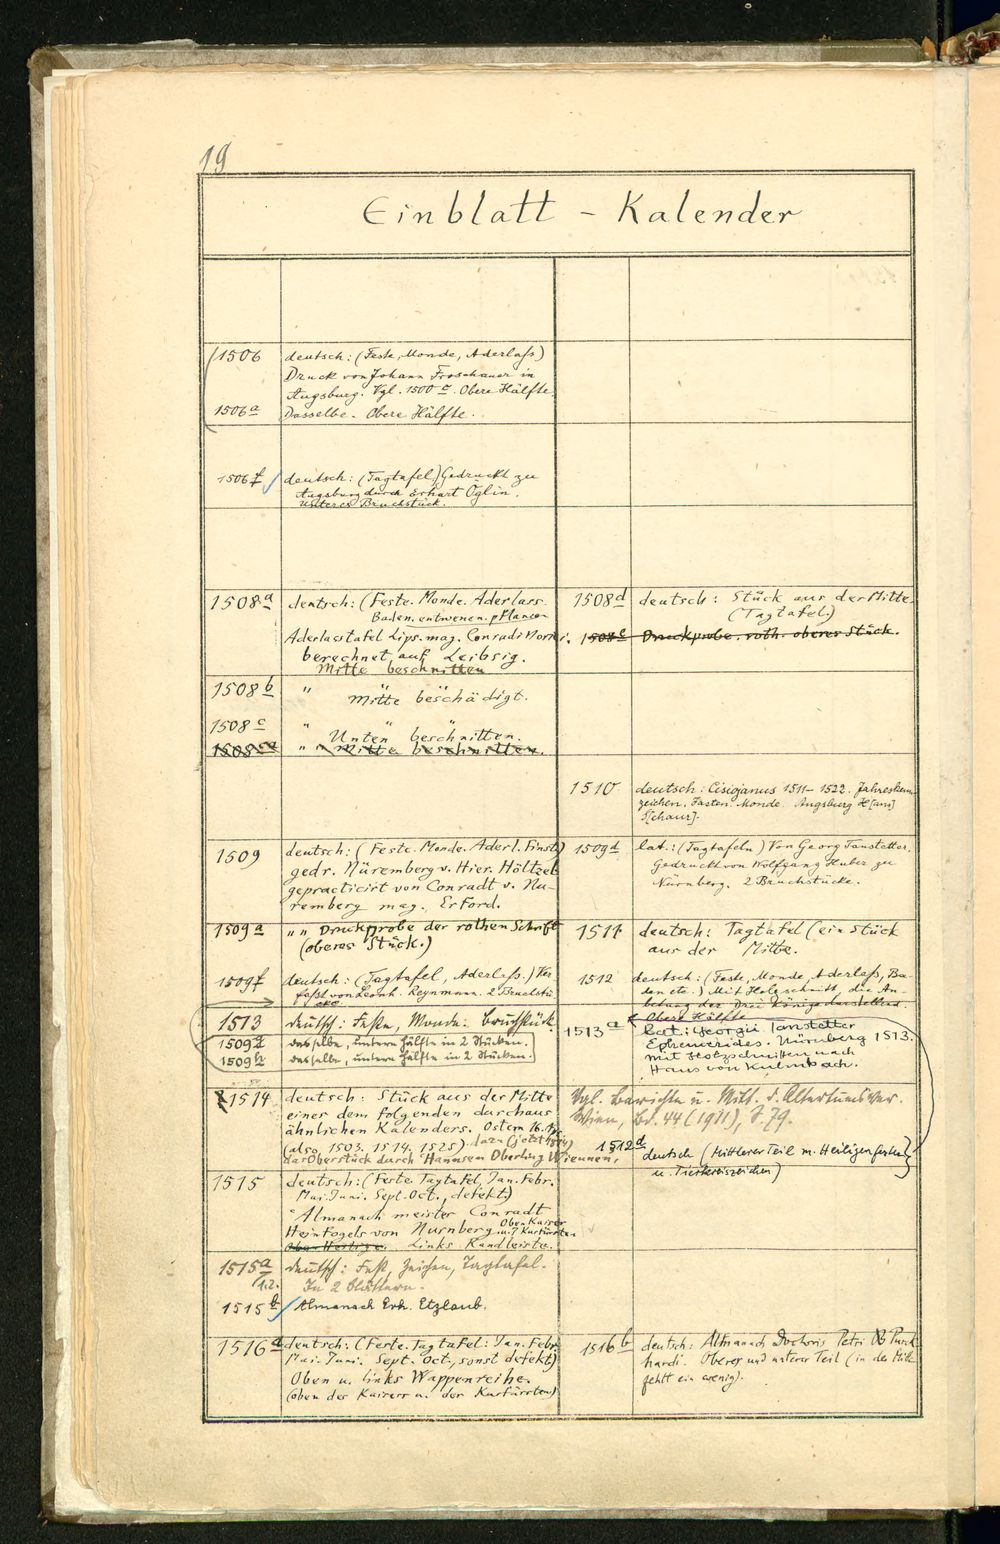 19
Einblatt - Kalender
1506 deutsch: (Feste, Monde, Aderlaſs)
Druck von Johann Froschauer in
Augsburg. Vgl. 1500 c. Obere Hälfte.
1506 a Dasselbe. Obere Hälfte.
1506 f deutsch: (Tagtafel) Gedruckt zu
Augsburg durch Erhart Öglin.
Unteres Bruchstück.
1508 a deutsch: (Feste. Monde. Aderlass.
Baden. entwenen. pflanzen
Aderlasstafel Lips. mag. Conradi Norici.
berechnet auf Leibsig.
Mitte beschnitten
1508 b " Mitte beschädigt.
1508 c " Unten beschnitten.
" " Mitte beschnitten.
1508 d deutsch: Stück aus der Mitte.
(Tagtafel)
Druckprobe. roth. oberes Stück.
1510 deutsch: Cisiojanus 1511-1522. Jahreskenn-
zeichen. Fasten. Monde. Augsburg H[ans]
S[chaur].
1509 deutsch: (Feste. Monde. Aderl. Finst.)
gedr. Nüremberg v. Hier. Höltzel
gepracticirt von Conradt v. Nu-
remberg mag. Erford.
1509 d lat.: (Tagtafeln) Von Georg Tanstetter.
Gedruckt von Wolfgang Huber zu
Nürnberg. 2 Bruchstücke.
1509 a " " Druckprobe der rothen Schrift
(oberes Stück.)
1509 f deutsch: (Tagtafel, Aderlaſs.) Ver
faſst von Leonh. Reynmann. 2 Bruchstü
cke
1511 deutsch: Tagtafel (ein Stück
aus der Mitte.
1512 deutsch: (Feste, Monde, Aderlaſs, Ba-
den etc.) Mit Holzschnitt, die An-
betung der Drei Könige darstellend
Obere Hälfte
1513 deutsch: Feste, Monde. Bruchstück.
1509 g dasselbe, untere Hälfte in 2 Stücken.
1509 h dasselbe, untere Hälfte in 2 Stücken.
1513 a Lat.: Georgii Tanstetter
Ephemerides. Nürnberg 1513.
mit Holzschnitten nach
Hans von Kulmbach.
1514 deutsch: Stück aus der Mitte
eines dem folgenden durchaus
ähnlichen Kalenders. Ostern 16. Apr.
(also 1503. 1514. 1525). dazu (jetzt
das Oberstück durch Hannsen Oberling Wiennen,
Vgl. Berichte u. Mitt. d. Altertumsver.
Wien, Bd. 44 (1911), S. 79.
1512 d deutsch (Mittlerer Teil m. Heiligenfesten
u. Tierkreiszeichen)
1515 deutsch: (Feste. Tagtafel, Jan. Febr.
Mai. Juni. Sept. Oct., defekt)
"Almanach meister Conradt
Heinfogels von Nurnberg. Oben Kaiser
u. 7 Kurfürsten
Links Randleiste.
1515 a deutsch: Feste, Zeichen, Tagtafel.
1.2. In 2 Blättern.
1515 b Almanach Erh. Etzlaub.
1516 a deutsch: (Feste. Tagtafel: Jan. Febr.
Mai. Juni. Sept. Oct., sonst defekt)
Oben u. links Wappenreihe.
(oben des Kaisers u. der Kurfürsten)
1516 b deutsch: Almanach Doctoris Petri Burck
hardi. Oberer und unterer Teil (in der Mitte
fehlt ein wenig).